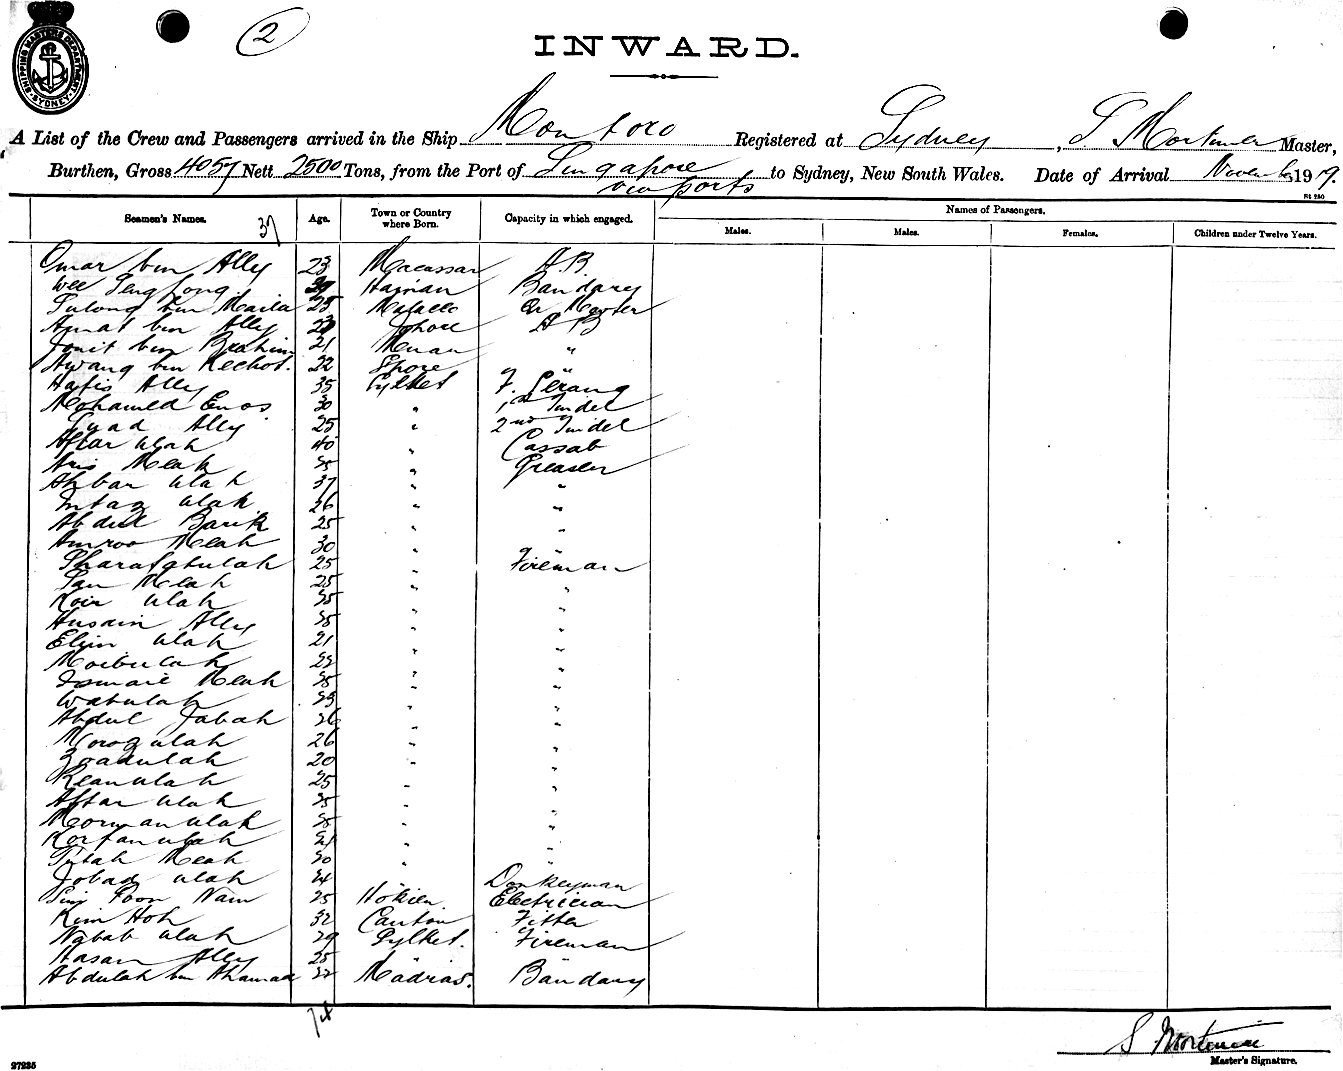 SHIPPING MASTERS DEPARTMENT
SYDNEY
2
INWARD.
A List of the Crew and Passengers arrived in the Ship Montoro Registered at Sydney, S Mortimer Master,
Burthen, Gross 4057 Nett 2500 Tons, from the Port of Singapore to Sydney, New South Wales. Date of Arrival Novemb 1919.
via ports
Names of Passengers.
Seamen's Names. 37 Age. Town or Country where Born. Capacity in which engaged. Males. Males. Females. Children under Twelve Years.
Omar bin Ally 23 Macassar A.B.
Wee Seng Hainan Bandary
bin 25
Amat bin Ally Johore A B
bin Brahim 21 "
Awang bin Kechot. 22 Spore "
Hafis Ally 35 Sylhet F. Serang
Mohamed Enos 30 " 1st Tindel
Ally 25 " 2nd Tindel
Aftar Ulah 40 " Cassab
Aris Meah 35 " Greaser
Akbar Ulah 37 " "
Intaz Ulah 26 " "
Abdul Barik 25 " "
Amroo Meah 30 " "
Sharafatulah 25 " Fireman
San Meah 25 " "
Koir Ulah 35 " "
Husain Ally 35 " "
Elim Ulah 21 " "
Moibulah 22 " "
Ismail Meah 35 " "
Wabulah 23 " "
Abdul Jabah 26 " "
Morogulah 26 " "
Zoadulah 20 " "
Keanulah 25 " "
Aftar Ulah 35 " "
Mormanulah 35 " "
Korfanulah 21 " "
Meah 30 " "
Jobad Ulah 24 " Donkeyman
Foon Nam 25 Hokien. Electrician
Kim Hoh 32 Canton Fitter
Nabab Ulah 29 Sylhet. Fireman
Hasan Ally 25 " "
Abdulah bin Ahamad 32 Madras. Bandary
74
S Mortimer
Master's Signature.
27235